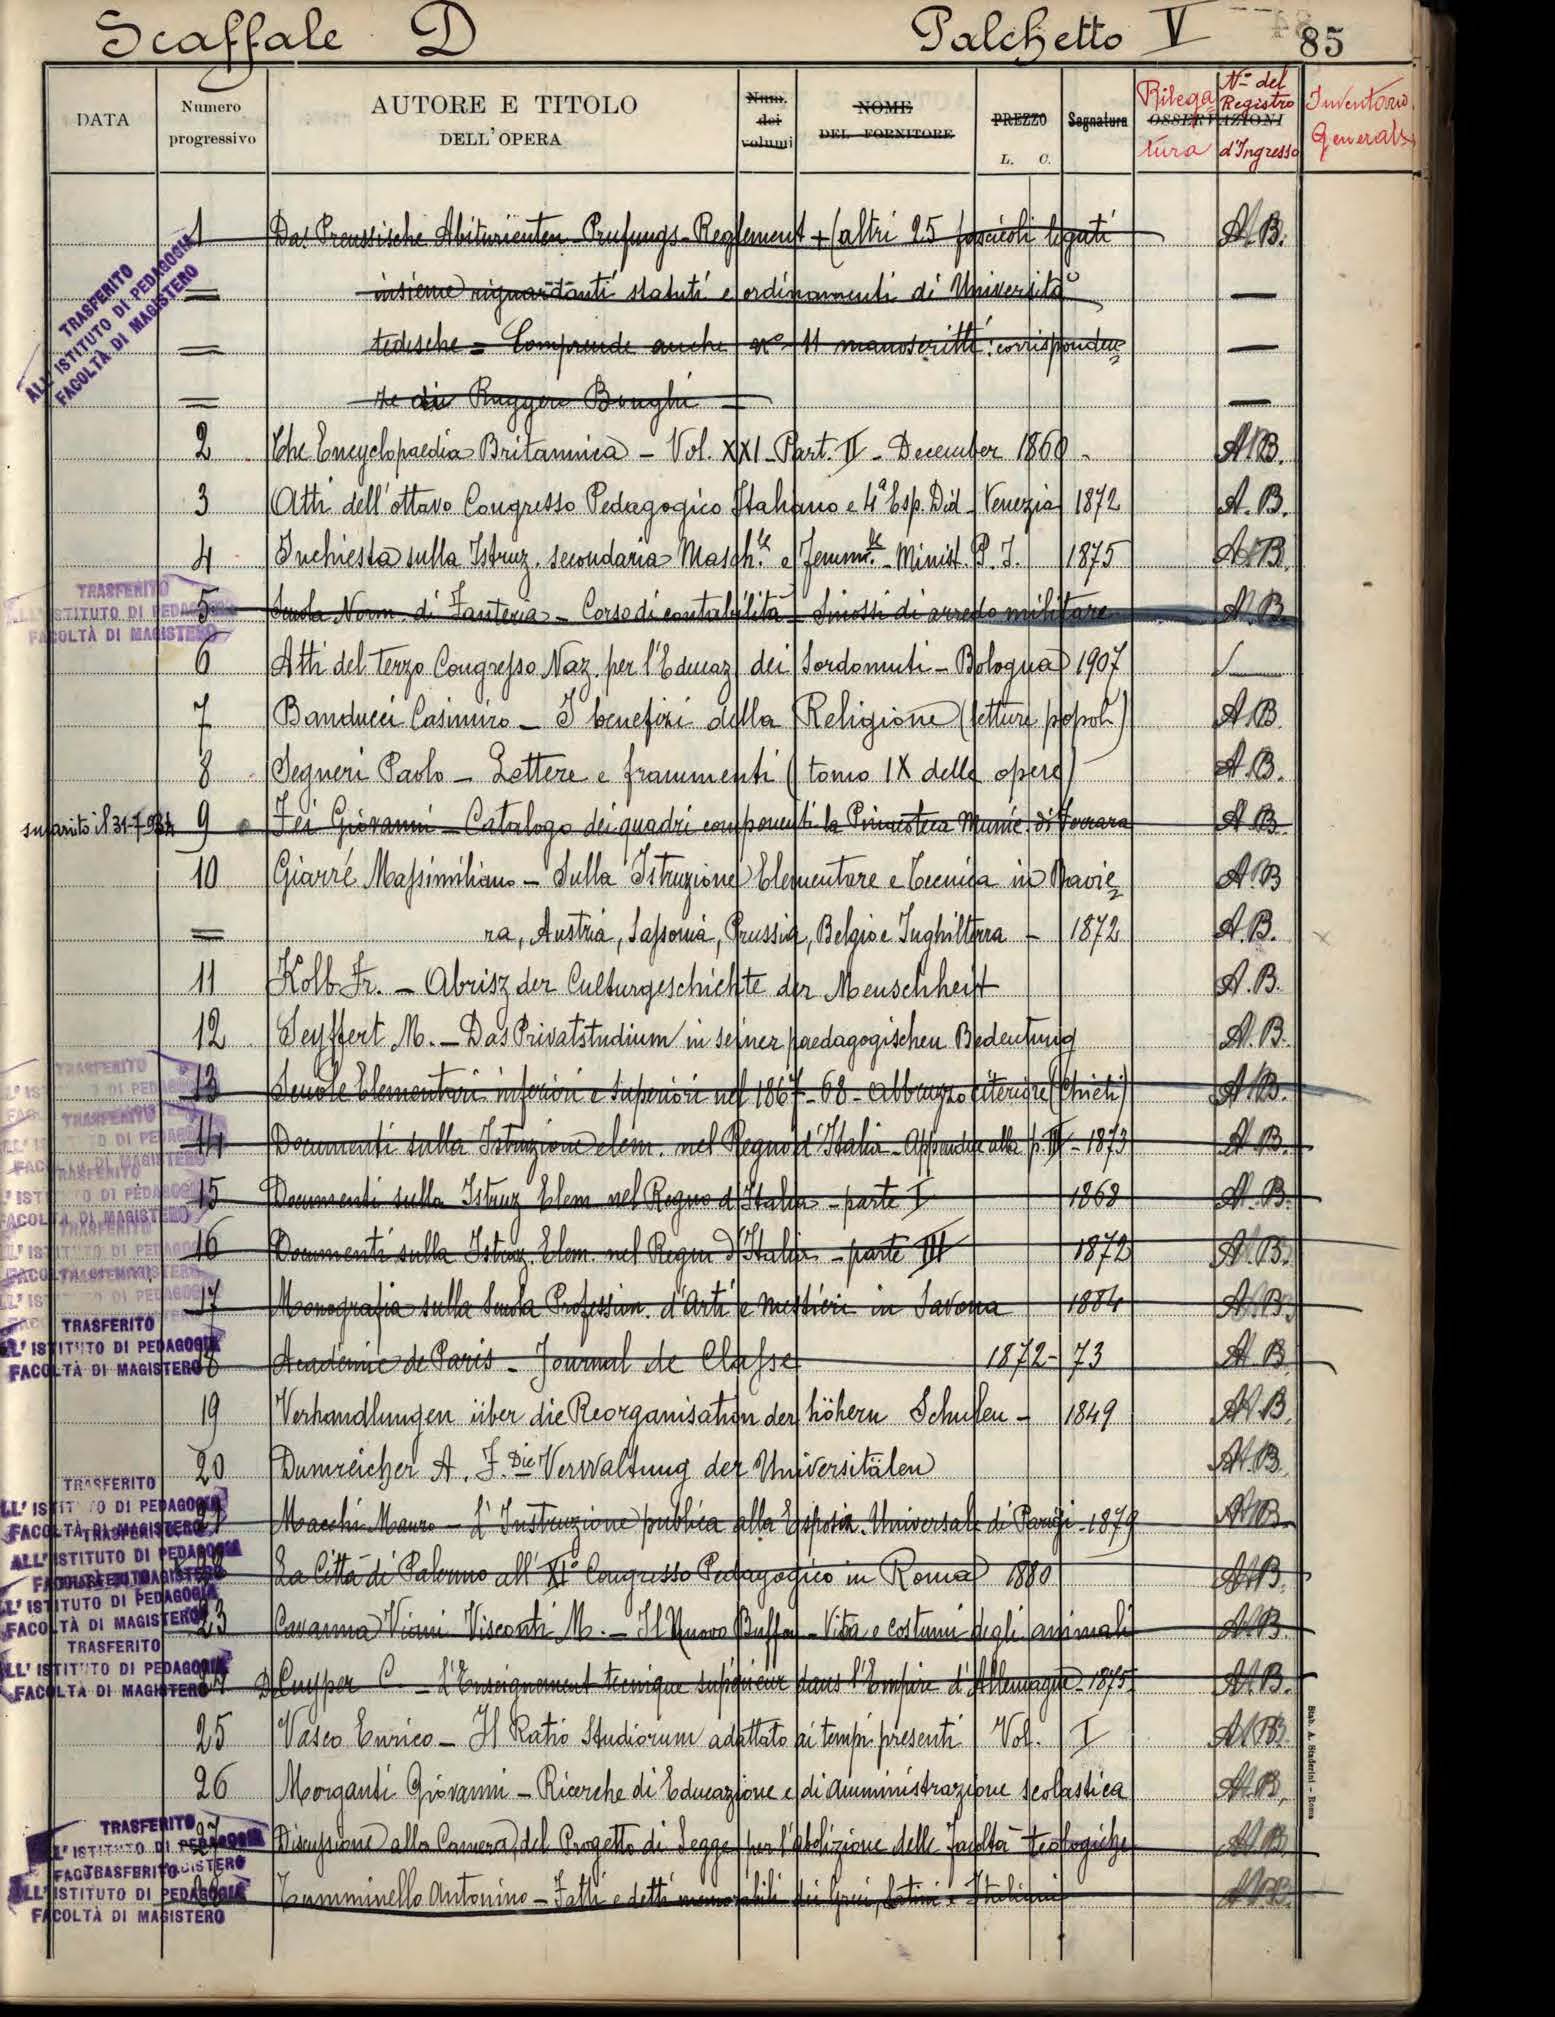 Scaffale D Palchetto V 85
DATA Numero progressivo AUTORE E TITOLO DELL'OPERA Num. dei volumi NOME DEL FORNITORE PREZZO L. C. Segnatura OSSERVAZIONI Rilegatura N.° del Registro d'Ingresso Inventario Generale
1 Das Preussische Abiturienten-Prufungs-Reglement + (altri 25 fascicoli legati A.B.
= insieme riguardanti statuti e ordinamenti di Università —
= tedesche = Comprende anche n° 11 manoscritti: corrisponden= —
= ze di Ruggero Bonghi — —
TRASFERITO
ALL'ISTITUTO DI PEDAGOGIA
FACOLTÀ DI MAGISTERO
2 The Encyclopaedia Britannica - Vol. XXI - Part. II - December 1860 - A.B.
3 Atti dell'ottavo Congresso Pedagogico Italiano e 4ª Esp. Did - Venezia 1872 A.B.
4 Inchiesta sulla Istruz. secondaria Masch.le e Femm.le - Minist. P. I. 1875 A.B.
TRASFERITO
ALL'ISTITUTO DI PEDAGOGIA
FACOLTÀ DI MAGISTERO
5 Scuola Norm. di Fanteria - Corso di contabilità - Sinossi di arredo militare A.B.
6 Atti del terzo Congresso Naz. per l'Educaz dei Sordomuti - Bologna 1907
7 Banducci Casimiro - I benefizi della Religione (letture popol) A.B.
8 Segneri Paolo - Lettere e frammenti (tomo IX delle opere) A.B.
9 Fei Giovanni - Catalogo dei quadri componenti la Pinacoteca Munic. di Ferrara A.B.
10 Giarré Massimiliano - Sulla Istruzione Elementare e Tecnica in Bavie= A.B.
= ra, Austria, Sassonia, Prussia, Belgio e Inghilterra - 1872 A.B.
11 Kolb Fr. - Abrisz der Culturgeschichte der Menschheit A.B.
12 Seyffert M. - Das Privatstudium in seiner paedagogischen Bedeutung A.B.
13 Scuole Elementari inferiori e superiori nel 1867-68 - Abbruzzo citeriore (Chieti) A.B.
14 Documenti sulla Istruzione elem. nel Regno d'Italia - Appendice alla p. III - 1873 A.B.
15 Documenti sulla Istruz Elem nel Regno d'Italia - parte I 1868 A.B.
16 Documenti sulla Istruz. Elem. nel Regno d'Italia - parte III 1872 A.B.
17 Monografia sulla Scuola Profession. d'Arti e mestieri in Savona 1884 A.B.
TRASFERITO
ALL'ISTITUTO DI PEDAGOGIA
FACOLTÀ DI MAGISTERO
18 Académie de Paris - Journal de Classe 1872-73 A.B.
19 Verhandlungen über die Reorganisation der höhern Schulen - 1849 A.B.
20 Dumreicher A. F. Die Verwaltung der Universitälen A.B.
TRASFERITO
ALL'ISTITUTO DI PEDAGOGIA
FACOLTÀ DI MAGISTERO
21 Macchi Mauro - L'Instruzione publica alla Esposiz. Universale di Parigi - 1879 A.B.
ALL'ISTITUTO DI PEDAGOGIA
22 La Città di Palermo all'XI° Congresso Pedagogico in Roma 1880 A.B.
ALL'ISTITUTO DI PEDAGOGIA
FACOLTÀ DI MAGISTERO
23 Cavanna Viani Visconti M. - Il Nuovo Buffon - Vita e costumi degli animali A.B.
TRASFERITO
ALL'ISTITUTO DI PEDAGOGIA
FACOLTÀ DI MAGISTERO
24 De Cuyper C. - L'Enseignement tecnique supérieur dans l'Empire d'Allemagne - 1875 A.B.
25 Vasco Enrico - Il Ratio Studiorum adattato ai tempi presenti Vol. I A.B.
26 Morganti Giovanni - Ricerche di Educazione e di amministrazione scolastica A.B.
TRASFERITO
ALL'ISTITUTO DI PEDAGOGIA
27 Discussione alla Camera del Progetto di Legge per l'abolizione delle facoltà teologiche A.B.
TRASFERITO
ALL'ISTITUTO DI PEDAGOGIA
FACOLTÀ DI MAGISTERO
28 Zumminello Antonino - Fatti e detti memorabili dei Greci, Latini e Italiani A.B.
Stab. A. Staderini - Roma